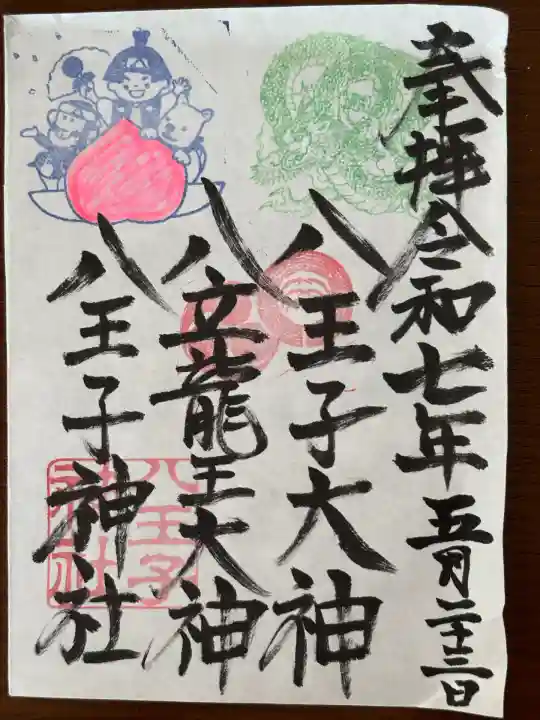 奉拝令和七年五月二十三日
八王子大神
八大龍王大神
八王子神社
八王子
神社